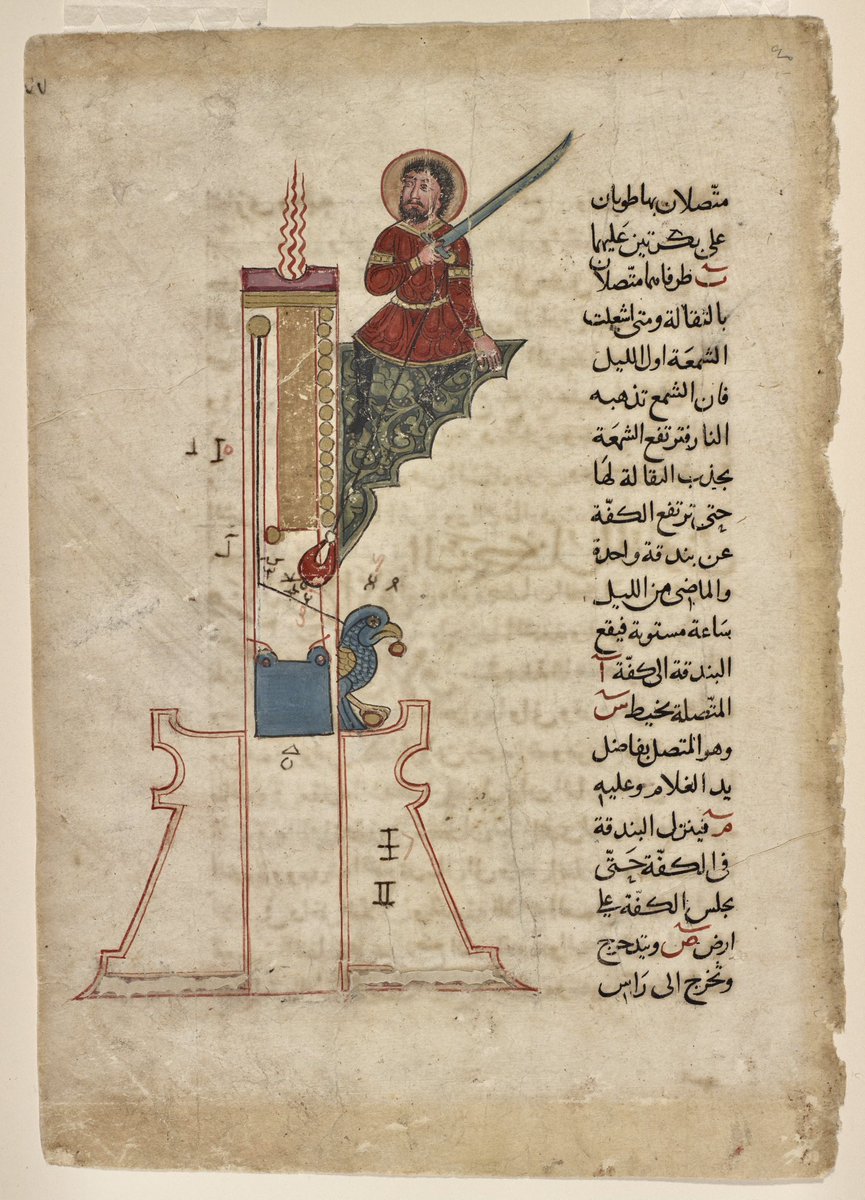 متصلان بها طويان
على بكرتين عليهما
ب طرفاهما متصلان
بالثقالة ومتى اشعلت
الشمعة اول الليل
فان الشمع تذهبه
النار فترتفع الشمعة
بجذب الثقالة لها
حتى ترتفع الكفة
عن بندقة واحدة
والماضى من الليل
ساعة مستوية فيقع
البندقة الى كفة آ
المتصلة بخيط س
وهو المتصل بفاضل
يد الغلام وعليه
م فينزل البندقة
فى الكفة حتى
يجلس الكفة على
ارض ص ويتدحرج
وتخرج الى راس